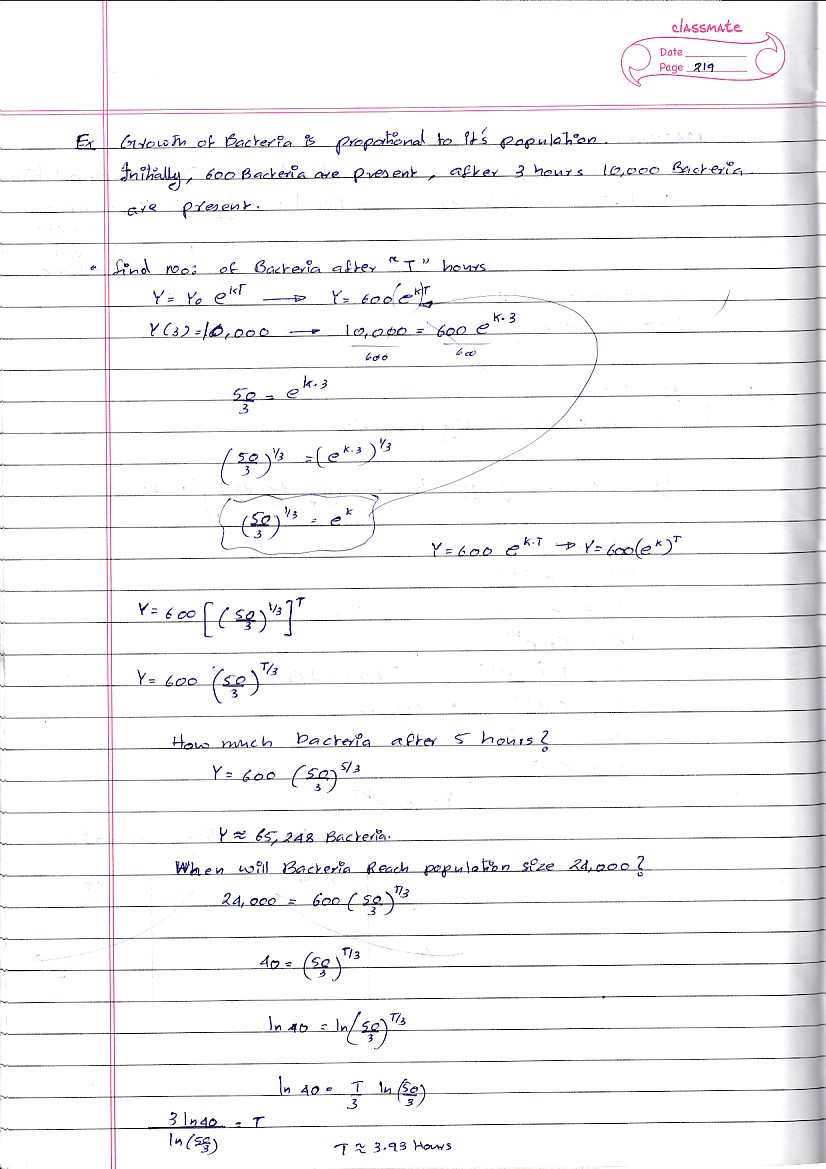 classmate
Date
Page 219
Ex Growth of Bacteria is proportional to it's population.
Initially, 600 Bacteria are present, after 3 hours 10,000 Bacteria
are present.
• find no: of Bacteria after "T" hours
Y = Y₀ e^kT → Y = 600(e^k)^T
Y(3) = 10,000 → 10,000/600 = 600 e^k·3/600
50/3 = e^k·3
(50/3)^1/3 = (e^k·3)^1/3
(50/3)^1/3 = e^k
Y = 600 e^k·T → Y = 600(e^k)^T
Y = 600 [(50/3)^1/3]^T
Y = 600 (50/3)^T/3
How much bacteria after 5 hours?
Y = 600 (50/3)^5/3
Y ≈ 65,248 Bacteria.
When will Bacteria Reach population size 24,000?
24,000 = 600 (50/3)^T/3
40 = (50/3)^T/3
ln 40 = ln(50/3)^T/3
ln 40 = T/3 ln(50/3)
3 ln40/ln(50/3) = T
T ≈ 3.93 Hours